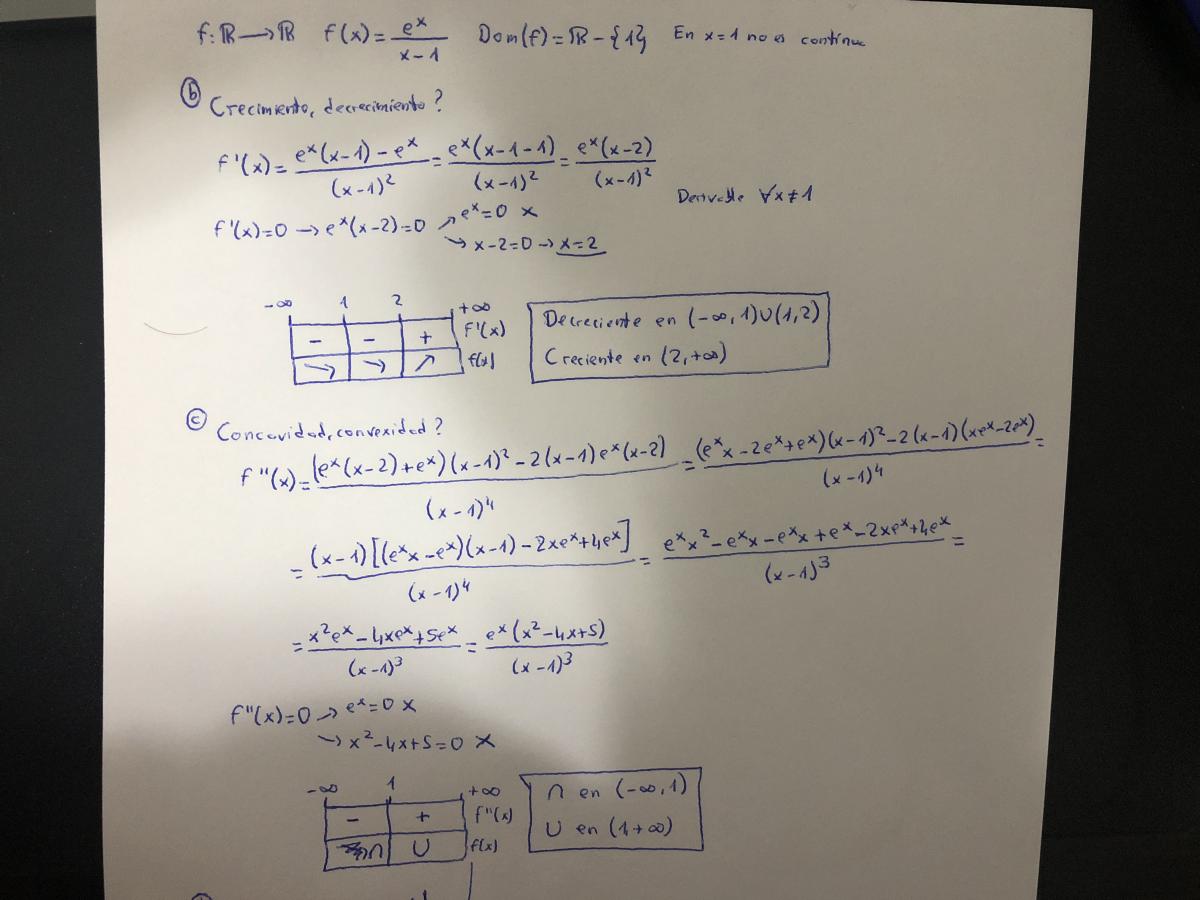 f: ℝ → ℝ f(x) = e^x/(x-1) Dom(f) = ℝ - {1} En x=1 no es continua
ⓑ Crecimiento, decrecimiento?
f'(x) = (e^x(x-1) - e^x)/(x-1)^2 = e^x(x-1-1)/(x-1)^2 = e^x(x-2)/(x-1)^2
Derivable ∀x≠1
f'(x)=0 → e^x(x-2)=0 ↗ e^x=0 ×
↘ x-2=0 → x=2
-∞ 1 2 +∞
- - + f'(x)
↘ ↘ ↗ f(x)
Decreciente en (-∞,1)∪(1,2)
Creciente en (2,+∞)
ⓒ Concavidad, convexidad?
f''(x) = ((e^x(x-2)+e^x)(x-1)^2 - 2(x-1)e^x(x-2))/(x-1)^4 = ((e^x x - 2e^x + e^x)(x-1)^2 - 2(x-1)(xe^x - 2e^x))/(x-1)^4 =
= (x-1)[(e^x x - e^x)(x-1) - 2xe^x + 4e^x]/(x-1)^4 = (e^x x^2 - e^x x - e^x x + e^x - 2xe^x + 4e^x)/(x-1)^3 =
= (x^2e^x - 4xe^x + 5e^x)/(x-1)^3 = e^x(x^2 - 4x + 5)/(x-1)^3
f''(x)=0 → e^x=0 ×
→ x^2-4x+5=0 ×
-∞ 1 +∞
- + f''(x)
∩ ∪ f(x)
∩ en (-∞,1)
∪ en (1,+∞)